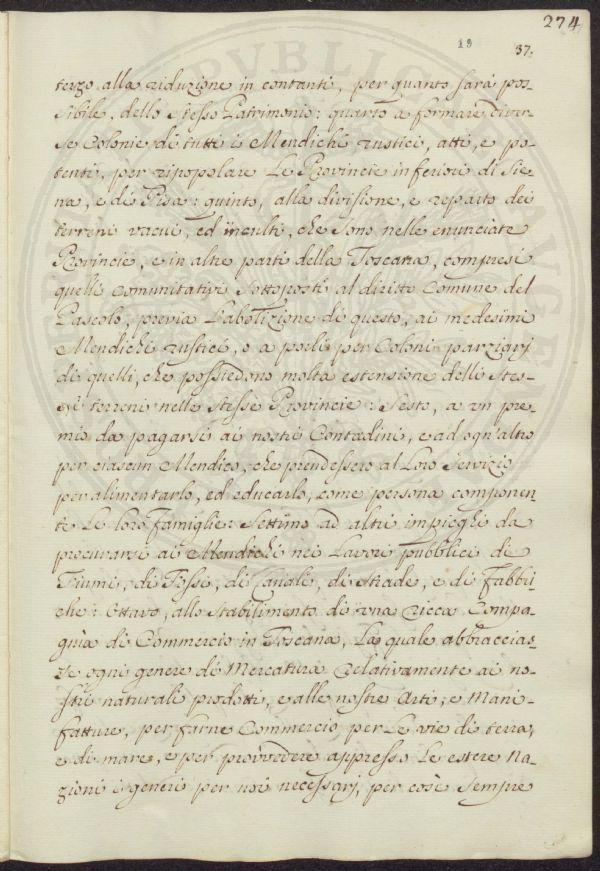 274
19 37.
terzo alla riduzione in contanti, per quanto sarà pos-
sibile, dello stesso Patrimonio: quarto a formare diver-
se Colonie di tutti i Mendichi rustici, atti, e po-
tenti, per ripopolare Le Provincie inferiori di Sie-
na, e di Pisa: quinto, alla divisione, e reparto dei
terreni vacui, ed inculti, che sono nelle enunciate
Provincie, e in altre parti della Toscana, compresi
quelli Comunitativi sottoposti al diritto Comune del
Pascolo, previa L'abolizione di questo, ai medesimi
Mendichi rustici, o a porli per Coloni parziarj
di quelli, che possiedono molta estensione delli stes-
si terreni nelle stesse Provincie: Sesto, a un pre-
mio da pagarsi ai nostri Contadini, e ad ogn'altro
per ciascun Mendico, che prendessero al Loro Servizio
per alimentarlo, ed educarlo, come persona componen-
te Le loro famiglie: Settimo ad altri impieghi da
procurarsi ai Mendichi nei Lavori pubblici di
Fiumi, di Fossi, di Canali, di strade, e di Fabbri-
che: Ottavo, allo stabilimento di una ricca Compa-
gnia di Commercio in Toscana, La quale abbraccias-
se ogni genere di Mercatura relativamente ai no-
stri naturali prodotti, e alle nostre Arti, e Mani-
fatture, per farne Commercio per Le vie di terra,
e di mare, e per provvedere appresso Le estere Na-
zioni i generi per noi necessarj, per così sempre